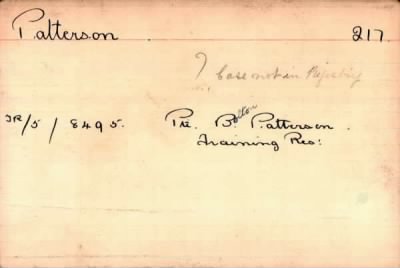 Patterson 217.
? Case not in Registry
TR/5/8495. Pte. B. Patterson.
Bolton
Training Res: